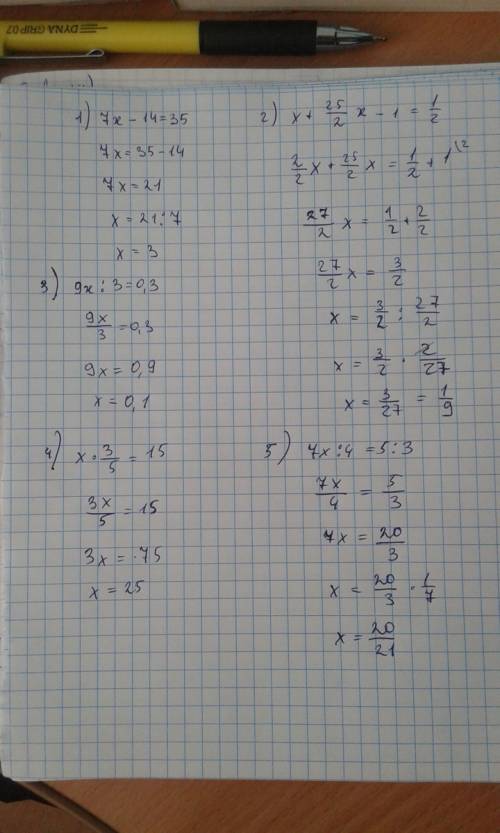 DYNA GRIP 0.7
1) 7x - 14 = 35
7x = 35 - 14
7x = 21
x = 21 : 7
x = 3
2) x + 25/2 x - 1 = 1/2
2/2 x + 25/2 x = 1/2 + 1^(2
27/2 x = 1/2 + 2/2
27/2 x = 3/2
x = 3/2 : 27/2
x = 3/2 · 2/27
x = 3/27 = 1/9
3) 9x : 3 = 0,3
9x/3 = 0,3
9x = 0,9
x = 0,1
4) x · 3/5 = 15
3x/5 = 15
3x = 75
x = 25
5) 7x : 4 = 5 : 3
7x/4 = 5/3
7x = 20/3
x = 20/3 · 1/7
x = 20/21